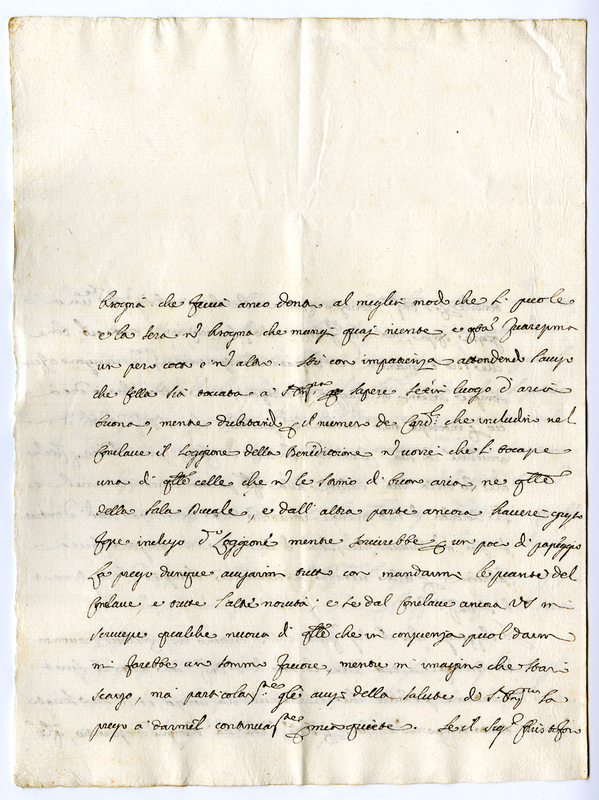 bisogna che faccia anco dona al meglior modo che si puole
e la sera nō bisogna che mangi quasi niente, e
un pero cotto e nō altro. Sto con impatienza attendendo l'aviso
che cella sia toccata a sapere se è in luogo d'aria
buona, mentre dubitando il numero de Card.li che includin nel
Conclave il Loggione della Benedittione nō vorrei che li toccasse
una di q.lle celle che nō le stimo di buon aria, ne q.lle
della Sala Ducale, e dall'altra parte ancora havere gusto
fosse incluso d.o Loggione mentre servirebbe un poco di passeggio
La prego dunque avisarmi tutto con mandarmi le piante del
Conclave e tutte l'altre novità; e se dal Conclave ancora VS mi
scrivesse qualche nuova di q.lle che in conscienza puol darmi
mi farebbe un sommo favore, mentre mi imagino che starò
scarso, ma particolarm.te gli avisi della salute di La
prego a darmeli continuam.te mia quiete. Se il Sig.r